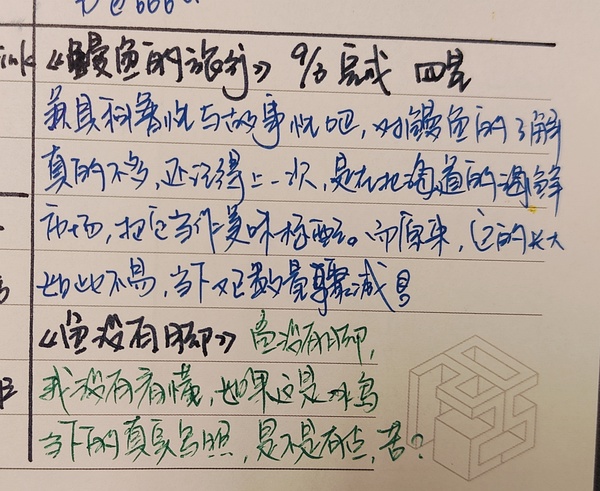 ink《鳗鱼的旅行》9/3 完成 四星
兼具科普性与故事性吧,对鳗鱼的了解
真的不多,还记得上一次,是在北海道的海鲜
市场,把它当作美味极。而原来,它的长大
如此不易,当下又已数量骤减
《鱼没有脚》鱼没有脚,
我没有看懂,如果这是冰岛
当下的真实写照,是不是有点,苦?